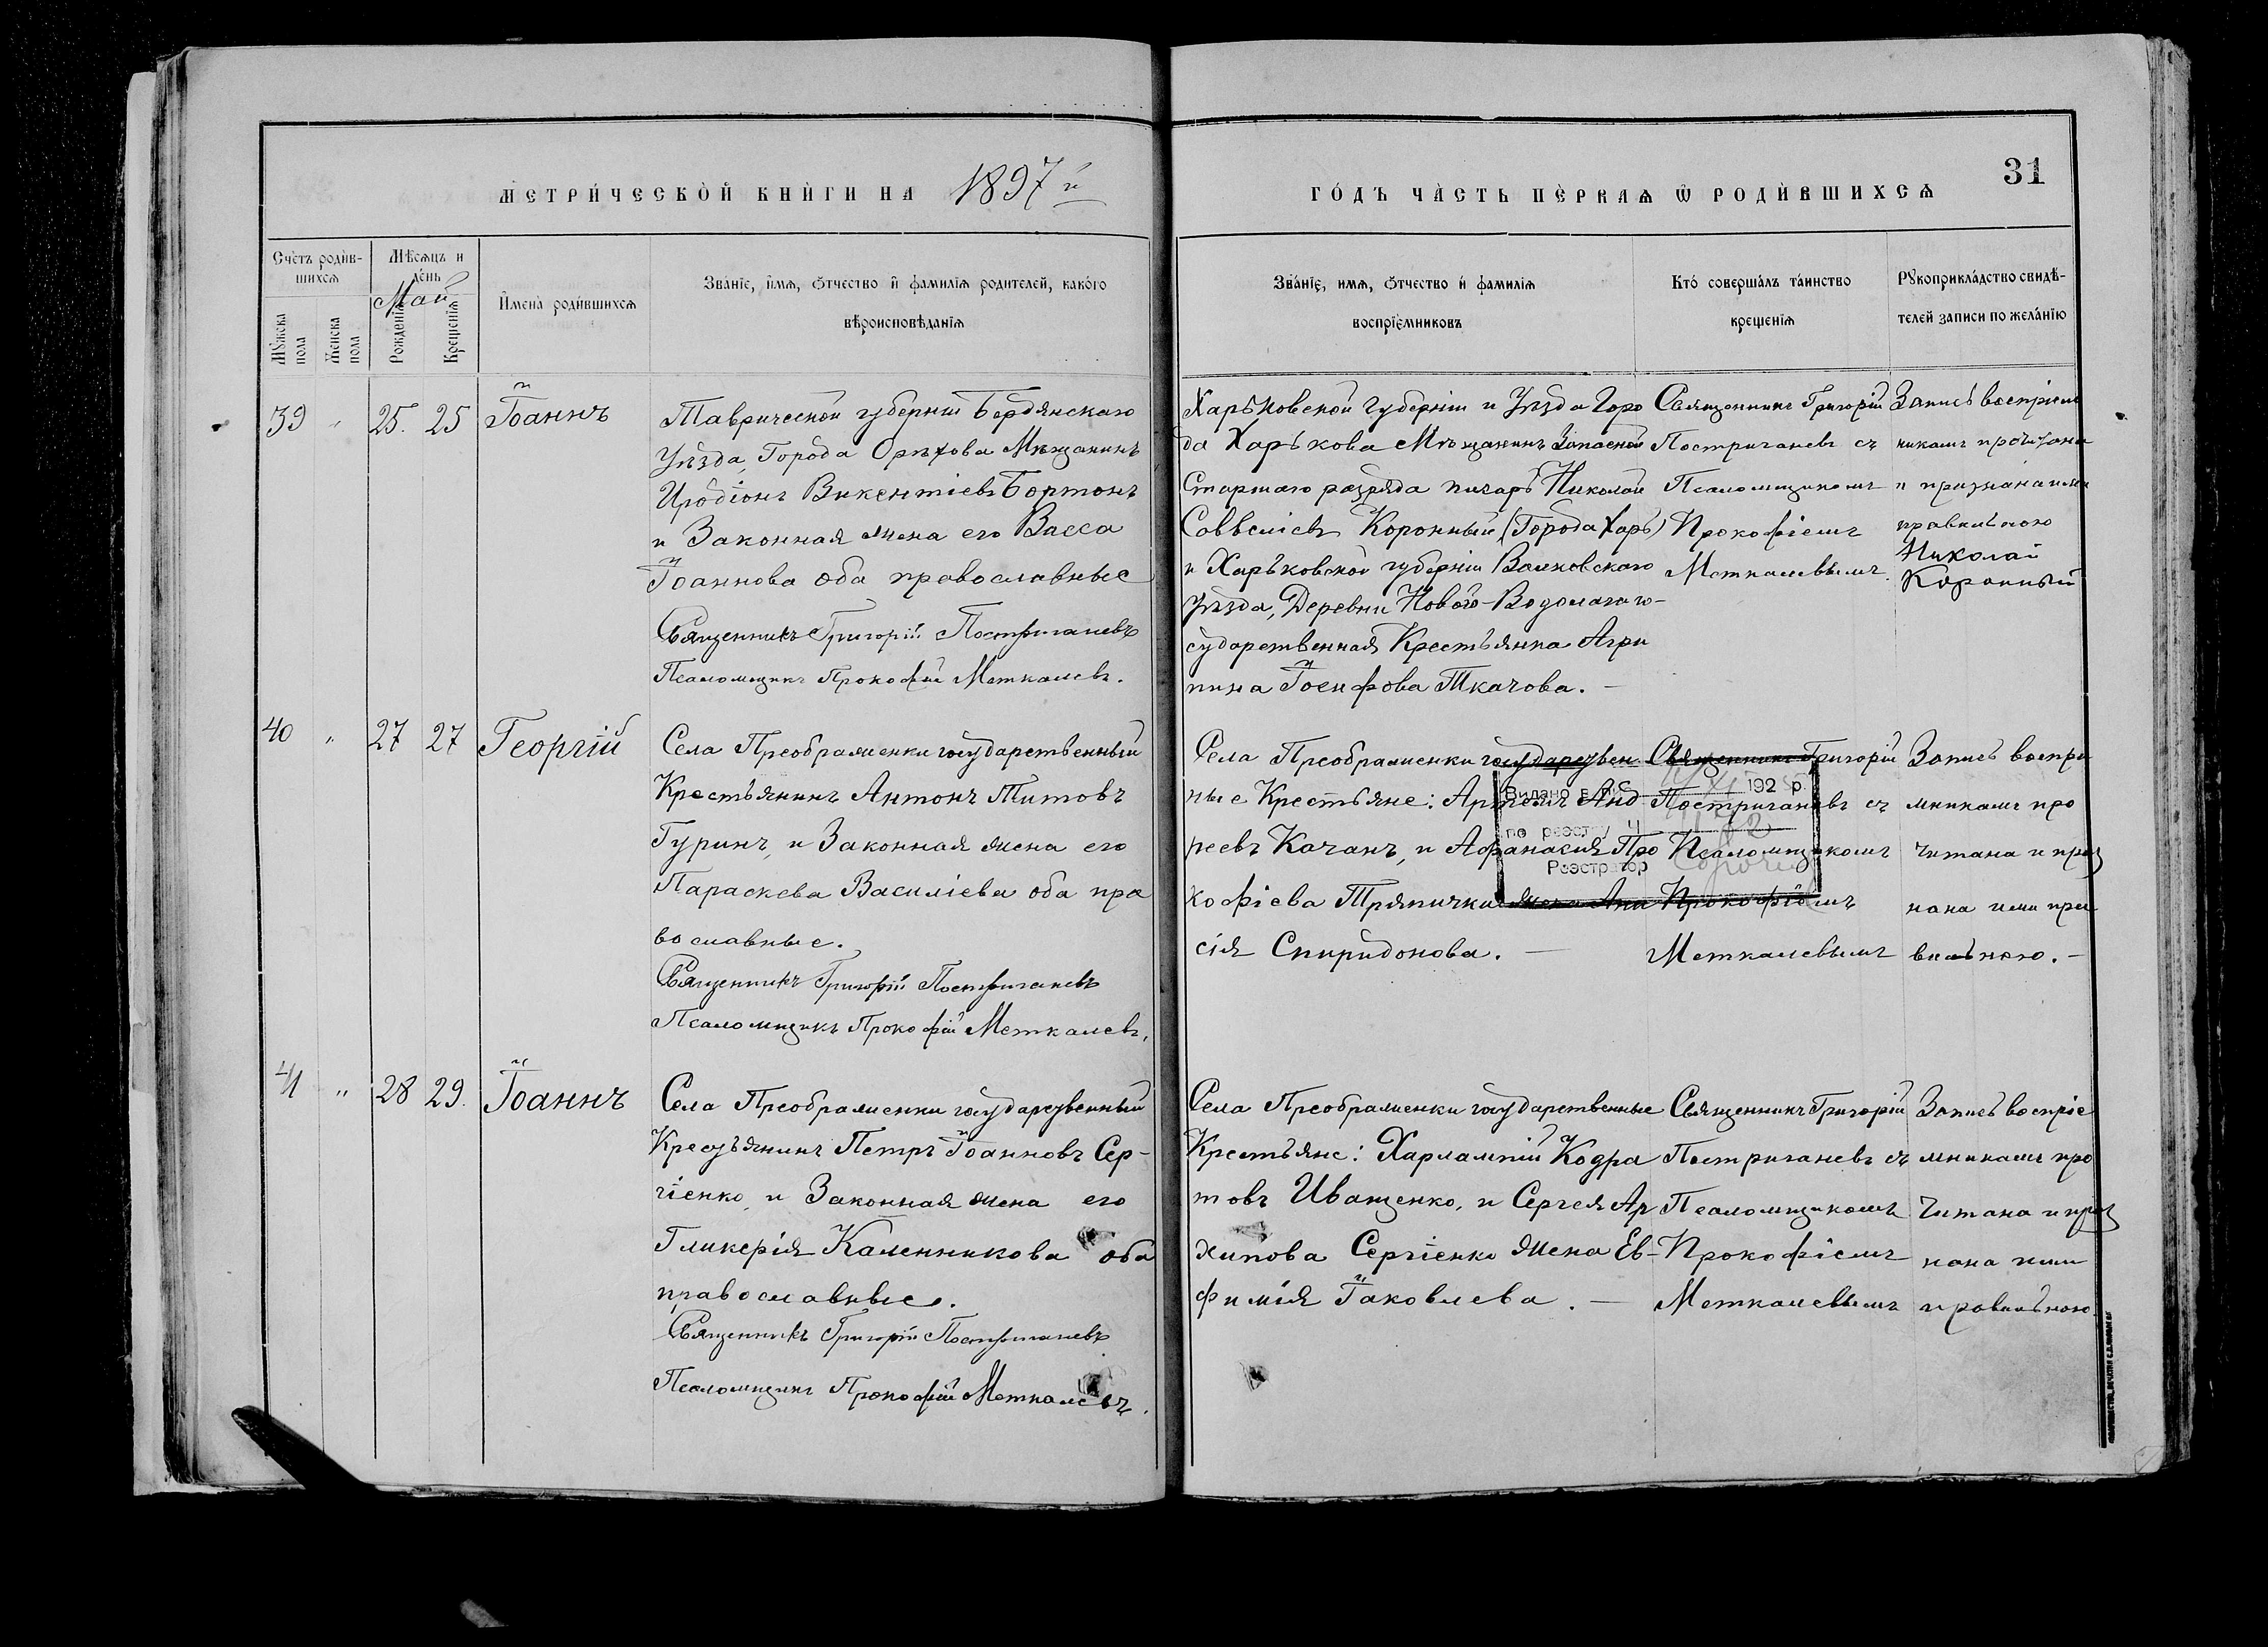 МЕТРИ́ЧЕСКО̀Й КНЍГИ НА 1897й
ГО́ДЪ ЧА̀СТЬ ПЀРВАѦ Ѿ РОДЍВШИХСѦ
31
Сче́тъ роди́в-
шихсѧ
Мѣ́сѧцъ и
де́нь
Май
Мꙋ́жеска
пола
Же́нска
пола
Рожде́нїѧ
Креще́нїѧ
И҆мена̀ роди́вшихсѧ
Зва́нїе, и҆́мѧ, ѻ҆́тчество и҆ фами́лїѧ родителей, како́го
вѣроисповѣ́данїѧ
Зва́нїе, имѧ, ѻ҆́тчество и҆ фами́лїѧ
воспрїе́мниковъ
Кто́ соверша́лъ та́инство
креще́нїѧ
Рꙋкоприкла́дство свидѣ́-
телей записи по жела́нїю
39 " 25. 25 Іоаннъ
Таврической губерніи Бердянскаго
Уѣзда, Города Орѣхова Мѣщанинъ
Иродіонъ Викентіевъ Бортонъ
и Законная жена его Васса
Іоаннова оба православные
Священникъ Григорій Постриганевъ
Псаломщикъ Прокофій Меткалевъ.
Харьковской Губерніи и Уѣзда Горо
да Харькова Мѣщанинъ Запасной
Старшаго разряда писарь Николай
Саввеліевъ Коронный (Города Харь)
и Харьковской губерніи Валковскаго
Уѣзда, Деревни Новаго-Водолага го-
сударственная Крестьянка Агри
пина Іосифова Ткачова. —
Священникъ Григорій
Постриганевъ съ
Псаломщикомъ
Прокофіемъ
Меткалевымъ.
Запись воспріем
никамъ прочитана
и признана ими
правильною
Николай
Коронный
40 " 27 27 Георгій
Села Преображенки государственный
Крестьянинъ Антонъ Титовъ
Гуринъ, и Законная жена его
Параскева Василіева оба пра
вославные.
Священникъ Григорій Постриганевъ
Псаломщикъ Прокофій Меткалевъ.
Села Преображенки государствен
ные Крестьяне: Артемъ Анд
реевъ Качанъ, и Афанасия Про
кофіева Тряпички жена Ана
сія Спиридонова. —
Священникъ Григорій
Постриганевъ съ
Псаломщикомъ
Прокофіемъ
Меткалевымъ
Запись воспріе
мникамъ про
читана и приз
нана ими пра
вильною. —
Видано
192 р.
по реєстру Ч
Реєстратор
41 " 28 29. Іоаннъ
Села Преображенки государственный
Крестьянинъ Петръ Іоанновъ Сер-
гіенко, и Законная жена его
Гликерія Каленникова оба
православные.
Священникъ Григорій Постриганевъ
Псаломщикъ Прокофій Меткалевъ.
Села Преображенки государственные
Крестьяне: Харлампій Кодра
товъ Иващенко, и Сергея Ар
хипова Сергіенко жена Ев-
фимія Іаковлева. —
Священникъ Григорій
Постриганевъ съ
Псаломщикомъ
Прокофіемъ
Меткалевымъ
Запись воспріе
мникамъ про
читана и приз
нана ими
правильною.